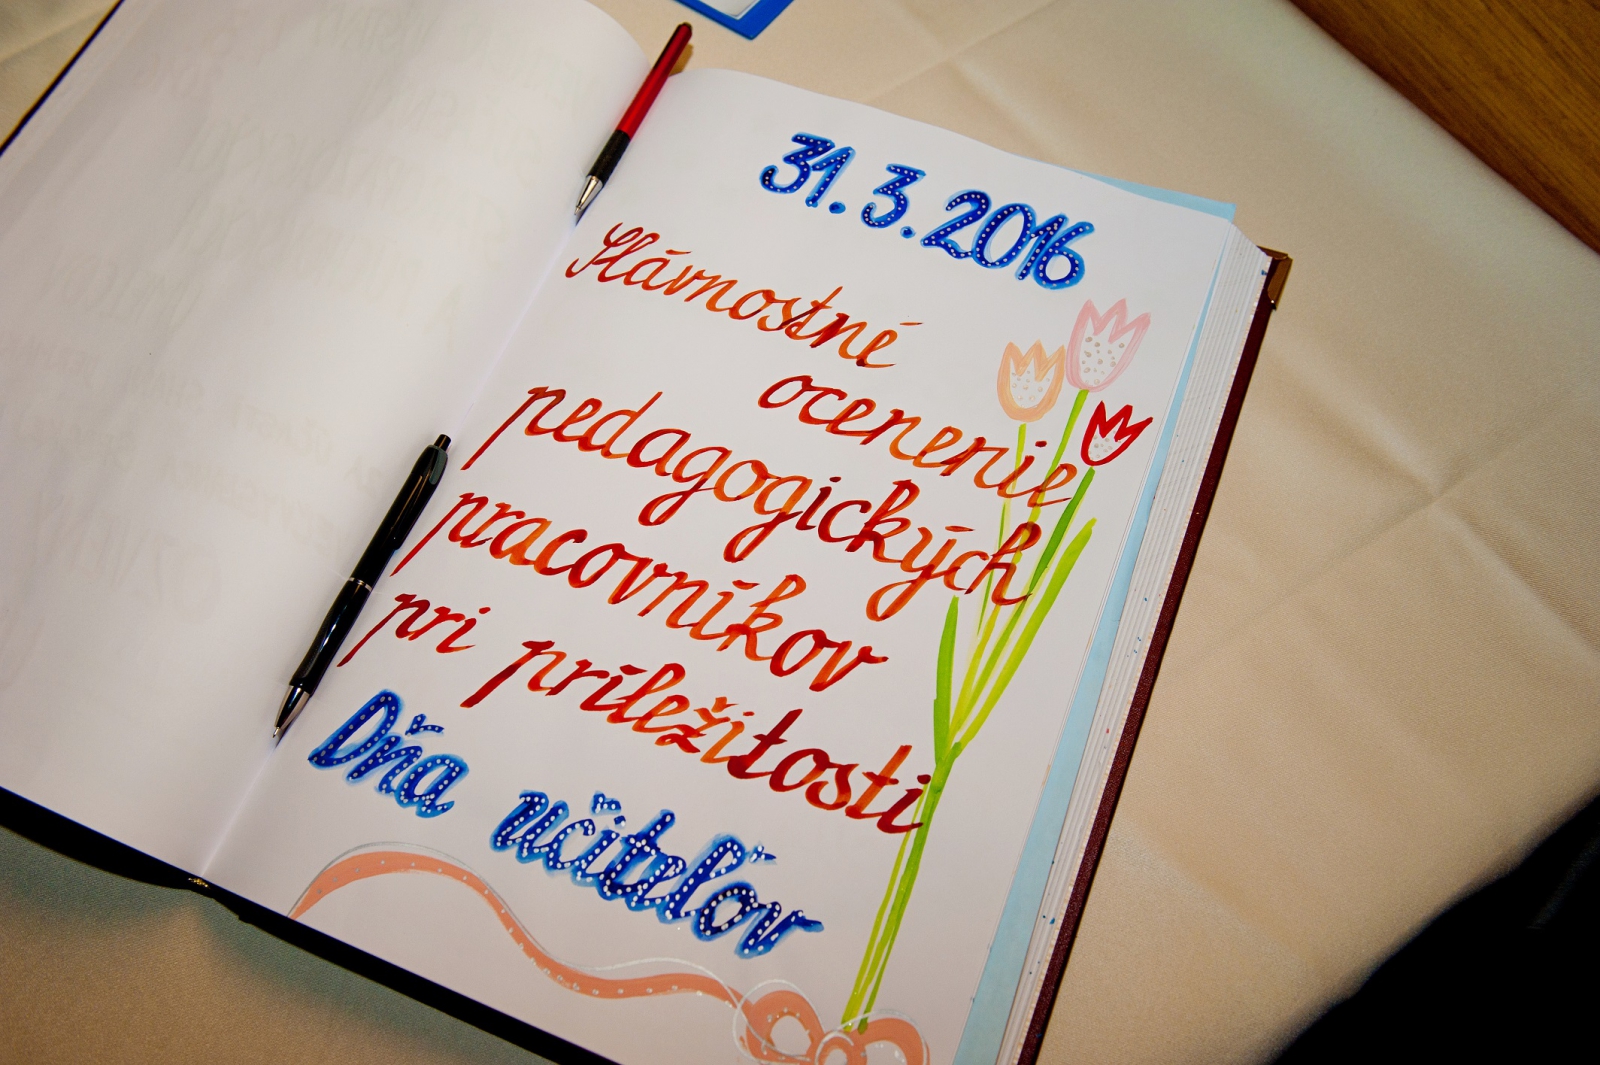 31.3.2016
Slávnostné
ocenenie
pedagogických
pracovníkov
pri príležitosti
Dňa učiteľov